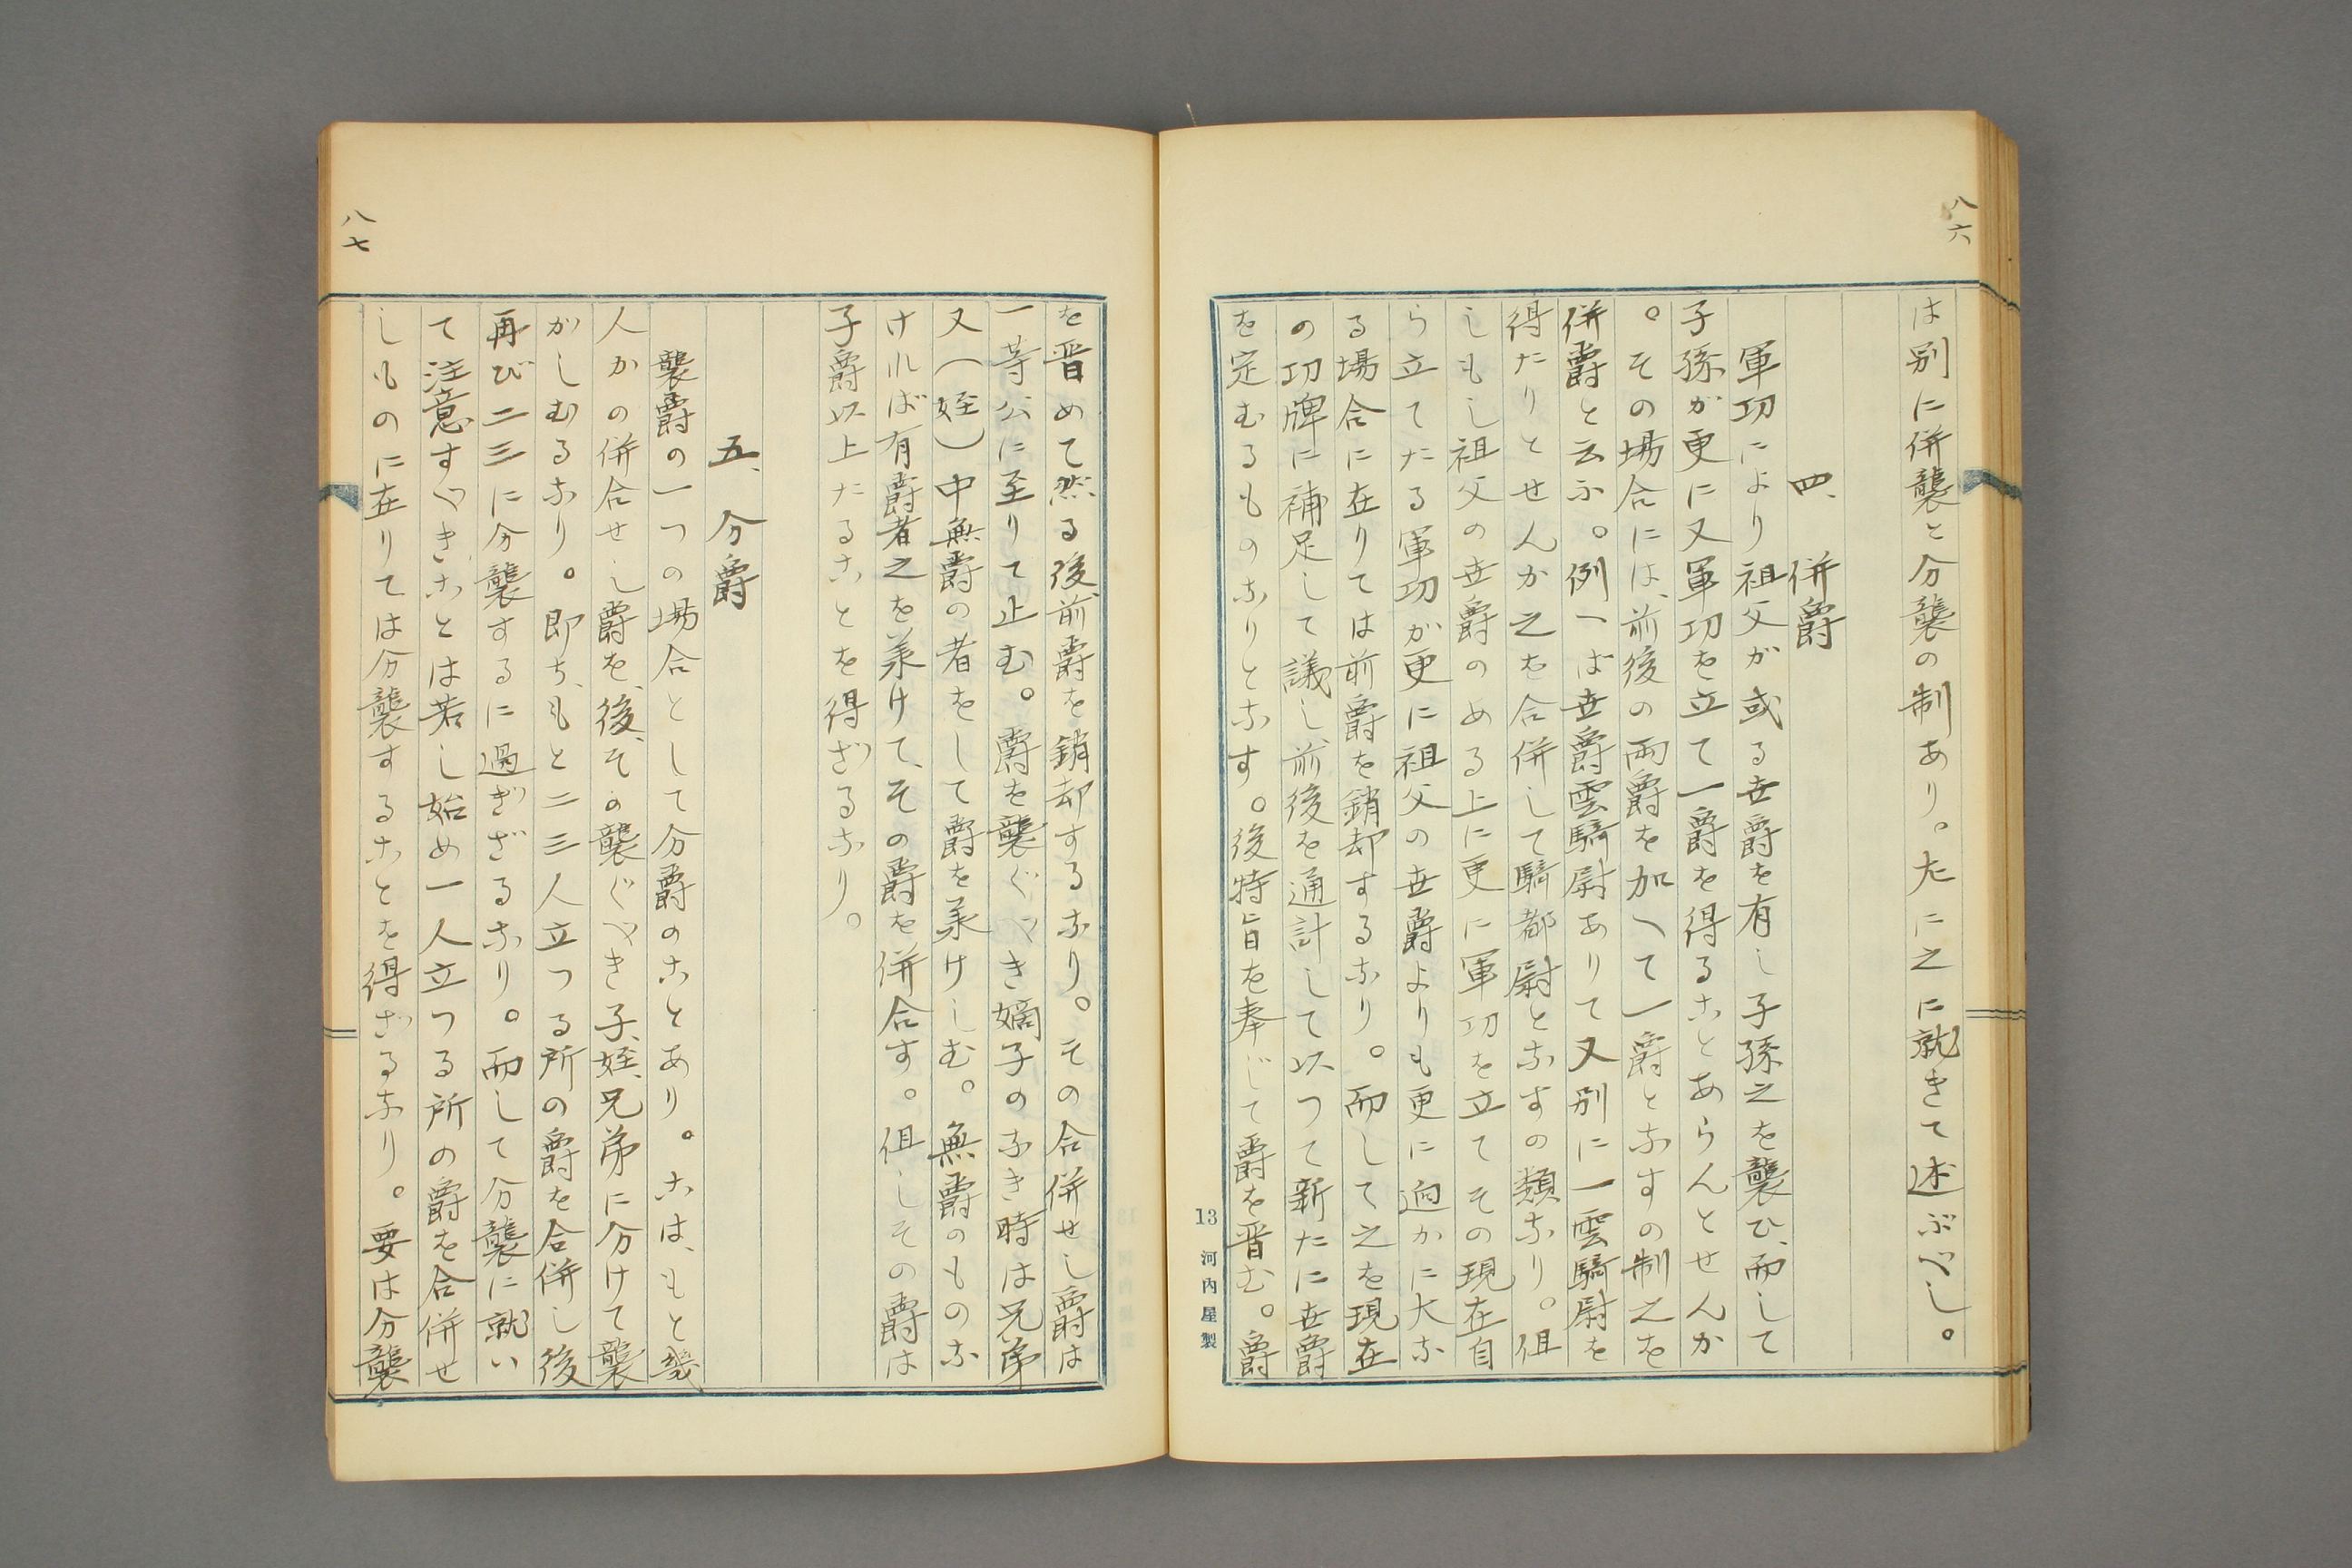 八六
は別に併襲と分襲の制あり。左に之に就きて述ぶべし。
四、併爵
軍功により祖父が或る世爵を有し子孫之を襲ひ、而して
子孫が更に又軍功を立て一爵を得ることあらんとせんか
。その場合には、前後の両爵を加へて一爵となすの制之を
併爵と云ふ。例へば世爵雲騎尉ありて又別に一雲騎尉を
得たりとせんか之を合併して騎都尉となすの類なり。但
しもし祖父の世爵のある上に更に軍功を立てその現在自
ら立てたる軍功が更に祖父の世爵よりも更に迥かに大な
る場合に在りては前爵を銷却するなり。而して之を現在
の功牌に補足して議し、前後を通計して以つて新たに世爵
を定むるものなりとなす。後特旨を奉じて爵を晋む。爵
13 河内屋製
を晋めて然る後、前爵を銷却するなり。その合併せし爵は
一等公に至りて止む。爵を襲ぐべき嫡子のなき時は兄弟
又(姪)中無爵の者をして爵を承けしむ。無爵のものな
ければ有爵者之を承けて、その爵を併合す。但しその爵は
子爵以上たることを得ざるなり。
五、分爵
襲爵の一つの場合として分爵のことあり。こは、もと幾
人かの併合せし爵を、後、その襲ぐべき子、姪、兄弟に分けて襲
がしむるなり。即ち、もと二三人立つる所の爵を合併し後
再び二三に分襲するに過ぎざるなり。而して分襲に就い
て注意すべきことは若し始め一人立つる所の爵を合併せ
しものに在りては分襲することを得ざるなり。要は分襲
八七